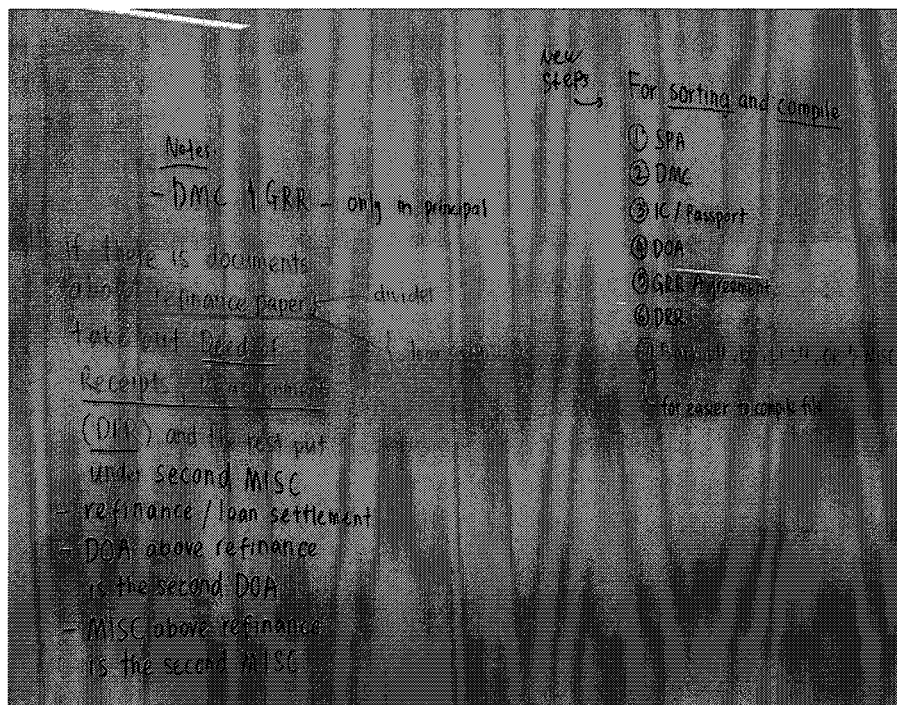 Notes:
- DMC & GRR - only in principal
If there is documents
above refinance paper
divider
take out Deed of
Receipts Reassignment
(DRR) and the rest put
under second MISC
- refinance / loan settlement
- DOA above refinance
is the second DOA
- MISC above refinance
is the second MISC
New
Steps
For sorting and compile
① SPA
② DMC
③ IC / Passport
④ DOA
⑤ GRR Agreement
⑥ DRR
for easier to compile file